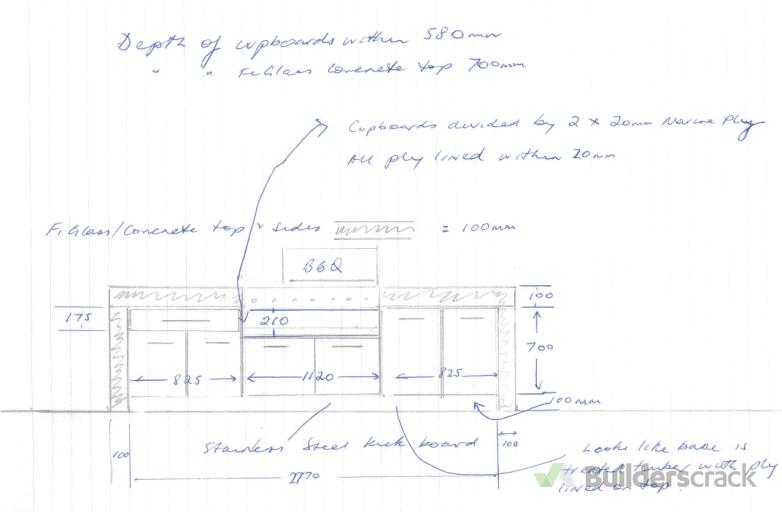 Depth of cupboards within 580mm
" " F.Glass Concrete top 700mm
Cupboards divided by 2 x 20mm Marine Ply
All ply lined within 20mm
F.Glass/Concrete top & sides = 100mm
BBQ
100
175
210
700
825
1120
825
100mm
Stainless Steel kick board
100
100
Looks like base is
treated timber with ply
lined on top.
2770
Builderscrack